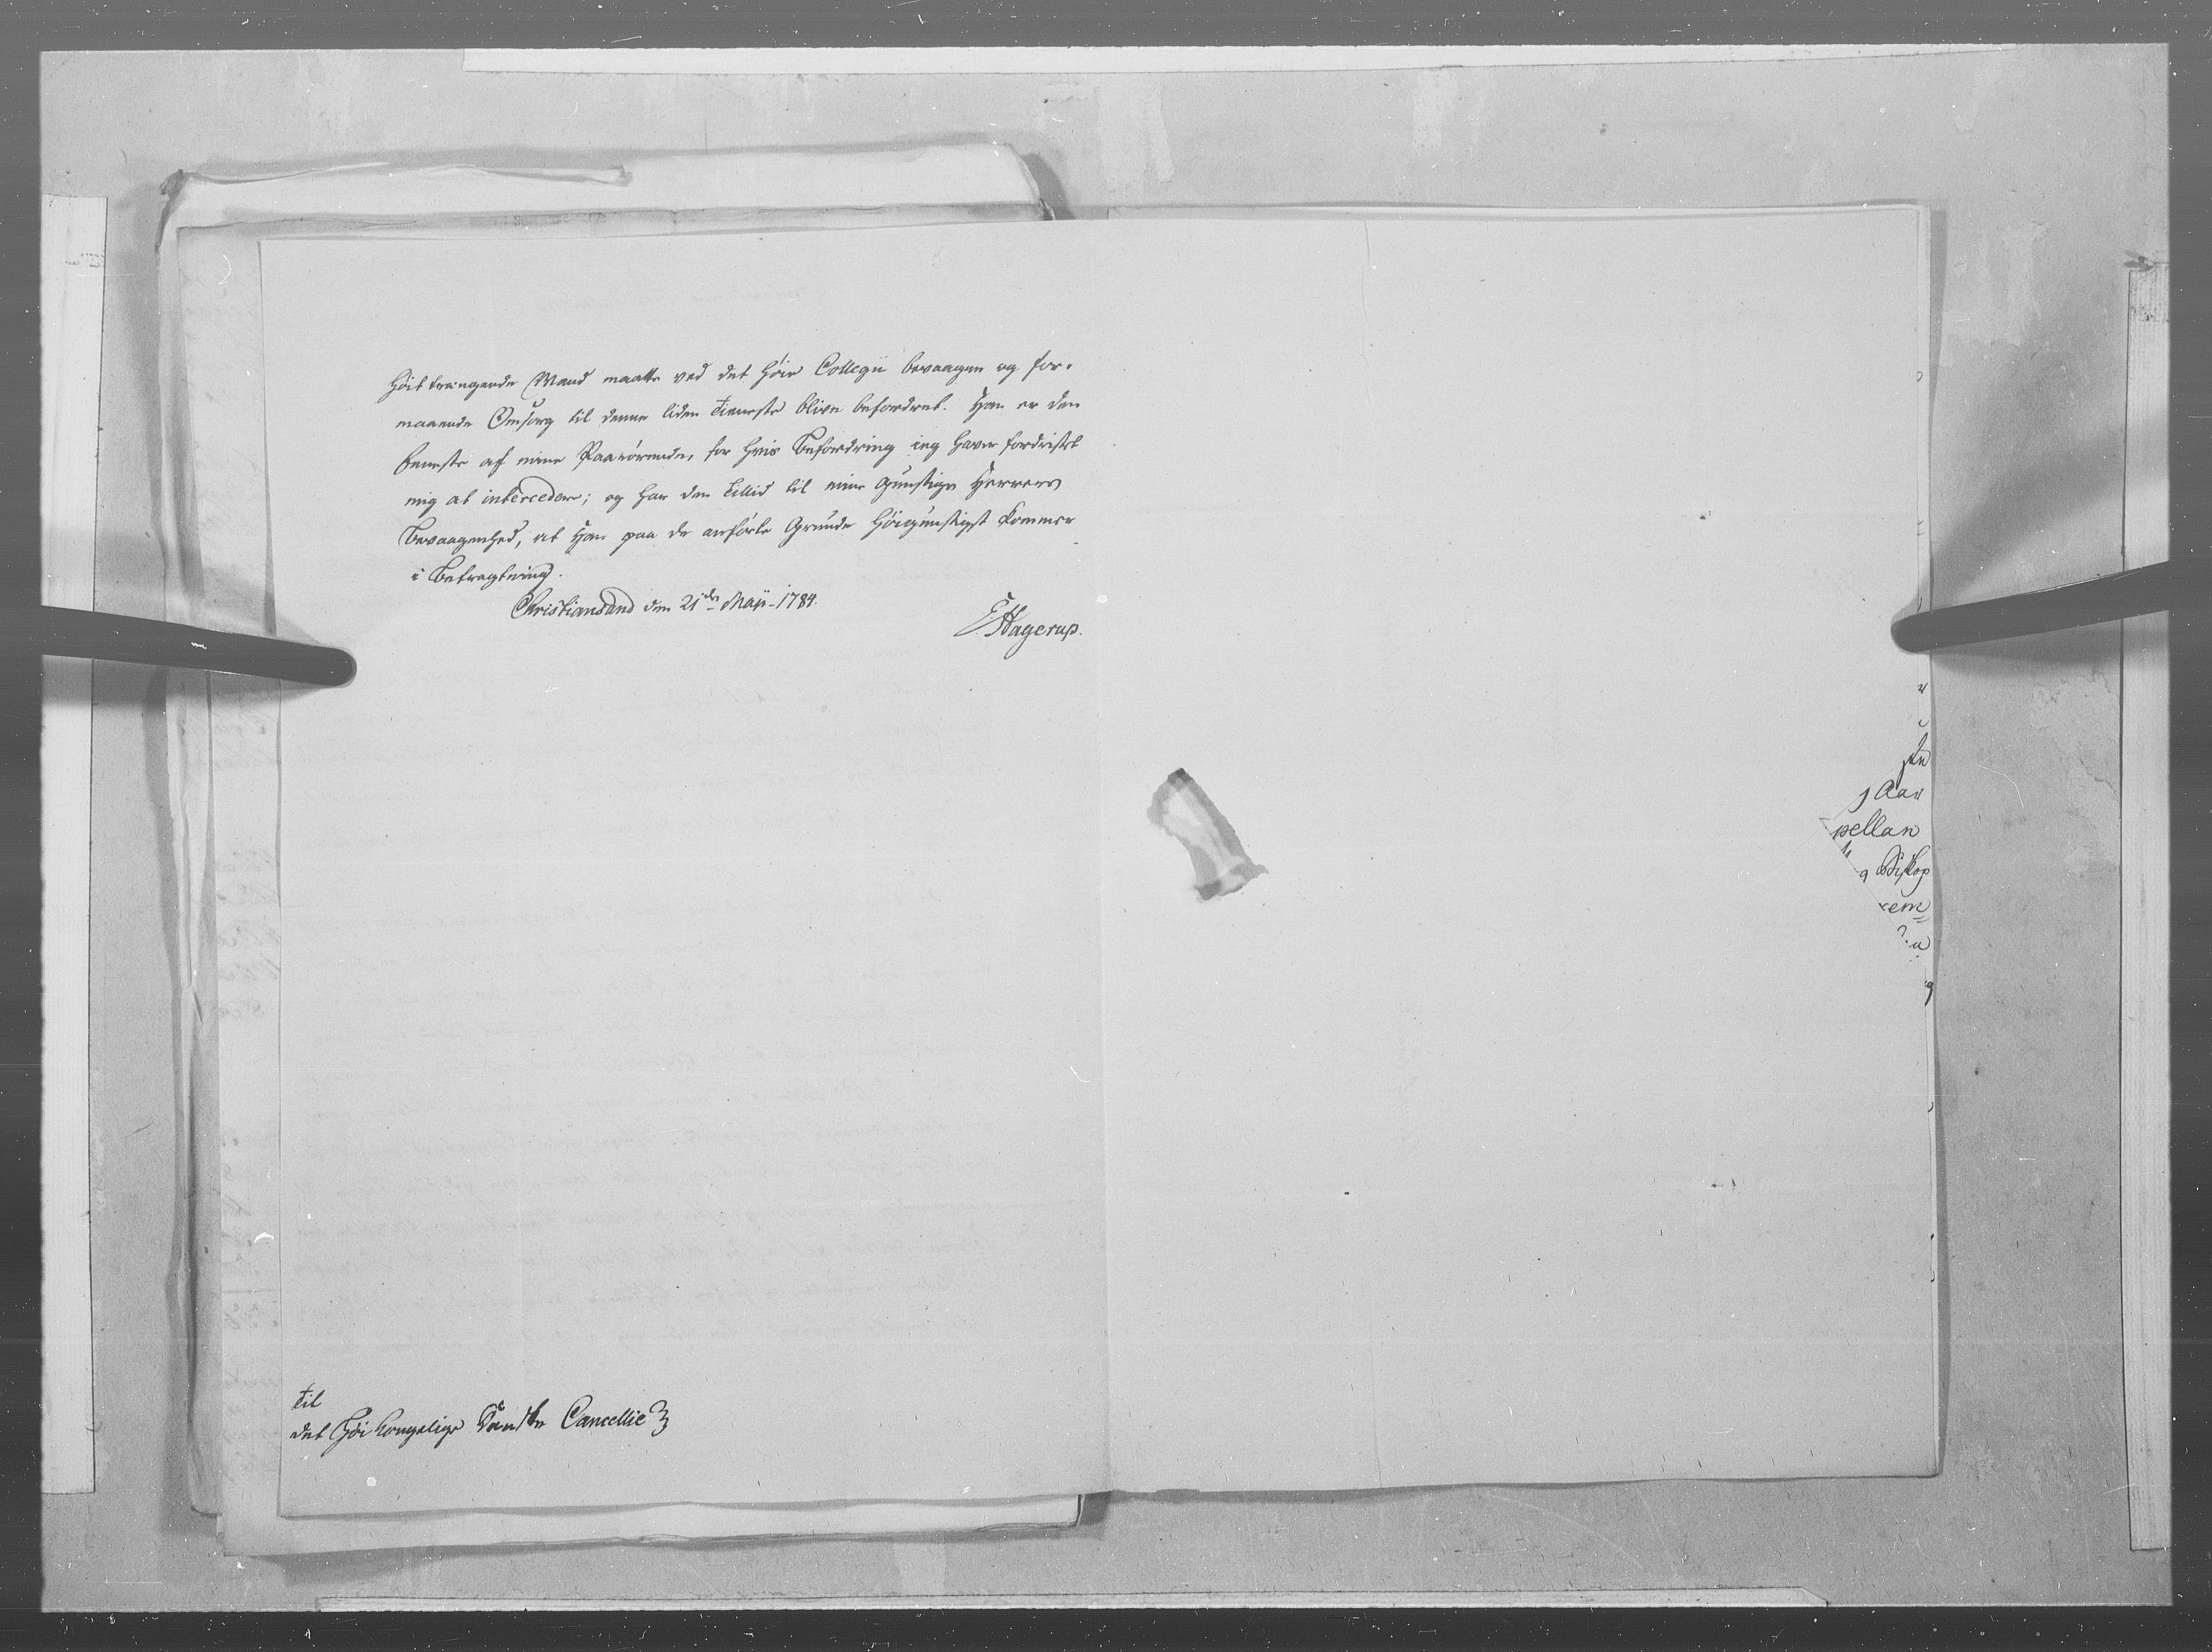 høit trængende Mand maatte ved det høie Collegii bevaagen og for-
maaende Omsorg til denne liden Tieneste blive befordret. Han er den
seneste af mine Paarørende, for hvis Befordring ieg haver fordristet
mig at intercedere; og har den Tillid til mine Gunstige Herrers
Bevaagenhed, at Han paa de anførte Grunde høigunstigst kommer
i Betragtning.
Christiansand den 21de Maii 1784.
E. Hagerup.
Til
det Høi Kongelige Danske Cancellie
Aar
pellan
Biskop